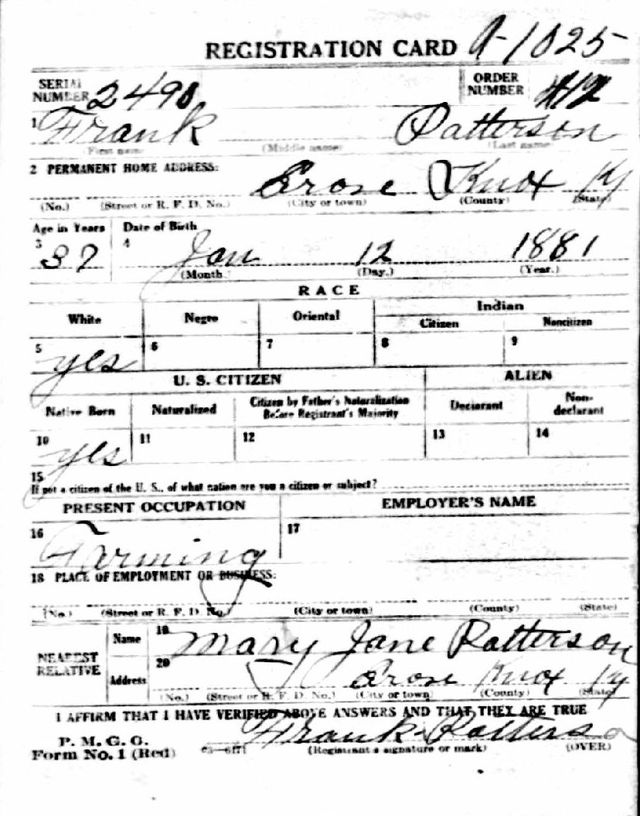 REGISTRATION CARD A-1025
SERIAL NUMBER 2490 ORDER NUMBER 412
1 Frank Patterson
(First name) (Middle name) (Last name)
2 PERMANENT HOME ADDRESS:
Crose Knox Ky
(No.) (Street or R. F. D. No.) (City or town) (County) (State)
Age in Years Date of Birth
3 37 4 Jan 12 1881
(Month.) (Day.) (Year.)
RACE
White Negro Oriental Indian
Citizen Noncitizen
5 yes 6 7 8 9
U. S. CITIZEN ALIEN
Native Born Naturalized Citizen by Father's Naturalization Before Registrant's Majority Declarant Non-declarant
10 yes 11 12 13 14
15
If not a citizen of the U. S., of what nation are you a citizen or subject?
PRESENT OCCUPATION EMPLOYER'S NAME
16 Farming 17
18 PLACE OF EMPLOYMENT OR BUSINESS:
(No.) (Street or R. F. D. No.) (City or town) (County) (State)
NEAREST RELATIVE Name 19 Mary Jane Patterson
Address 20 Crose Knox Ky
(No.) (Street or R. F. D. No.) (City or town) (County) (State)
I AFFIRM THAT I HAVE VERIFIED ABOVE ANSWERS AND THAT THEY ARE TRUE
P. M. G. O.
Form No. 1 (Red) Frank Patterso
(Registrant's signature or mark) (OVER)